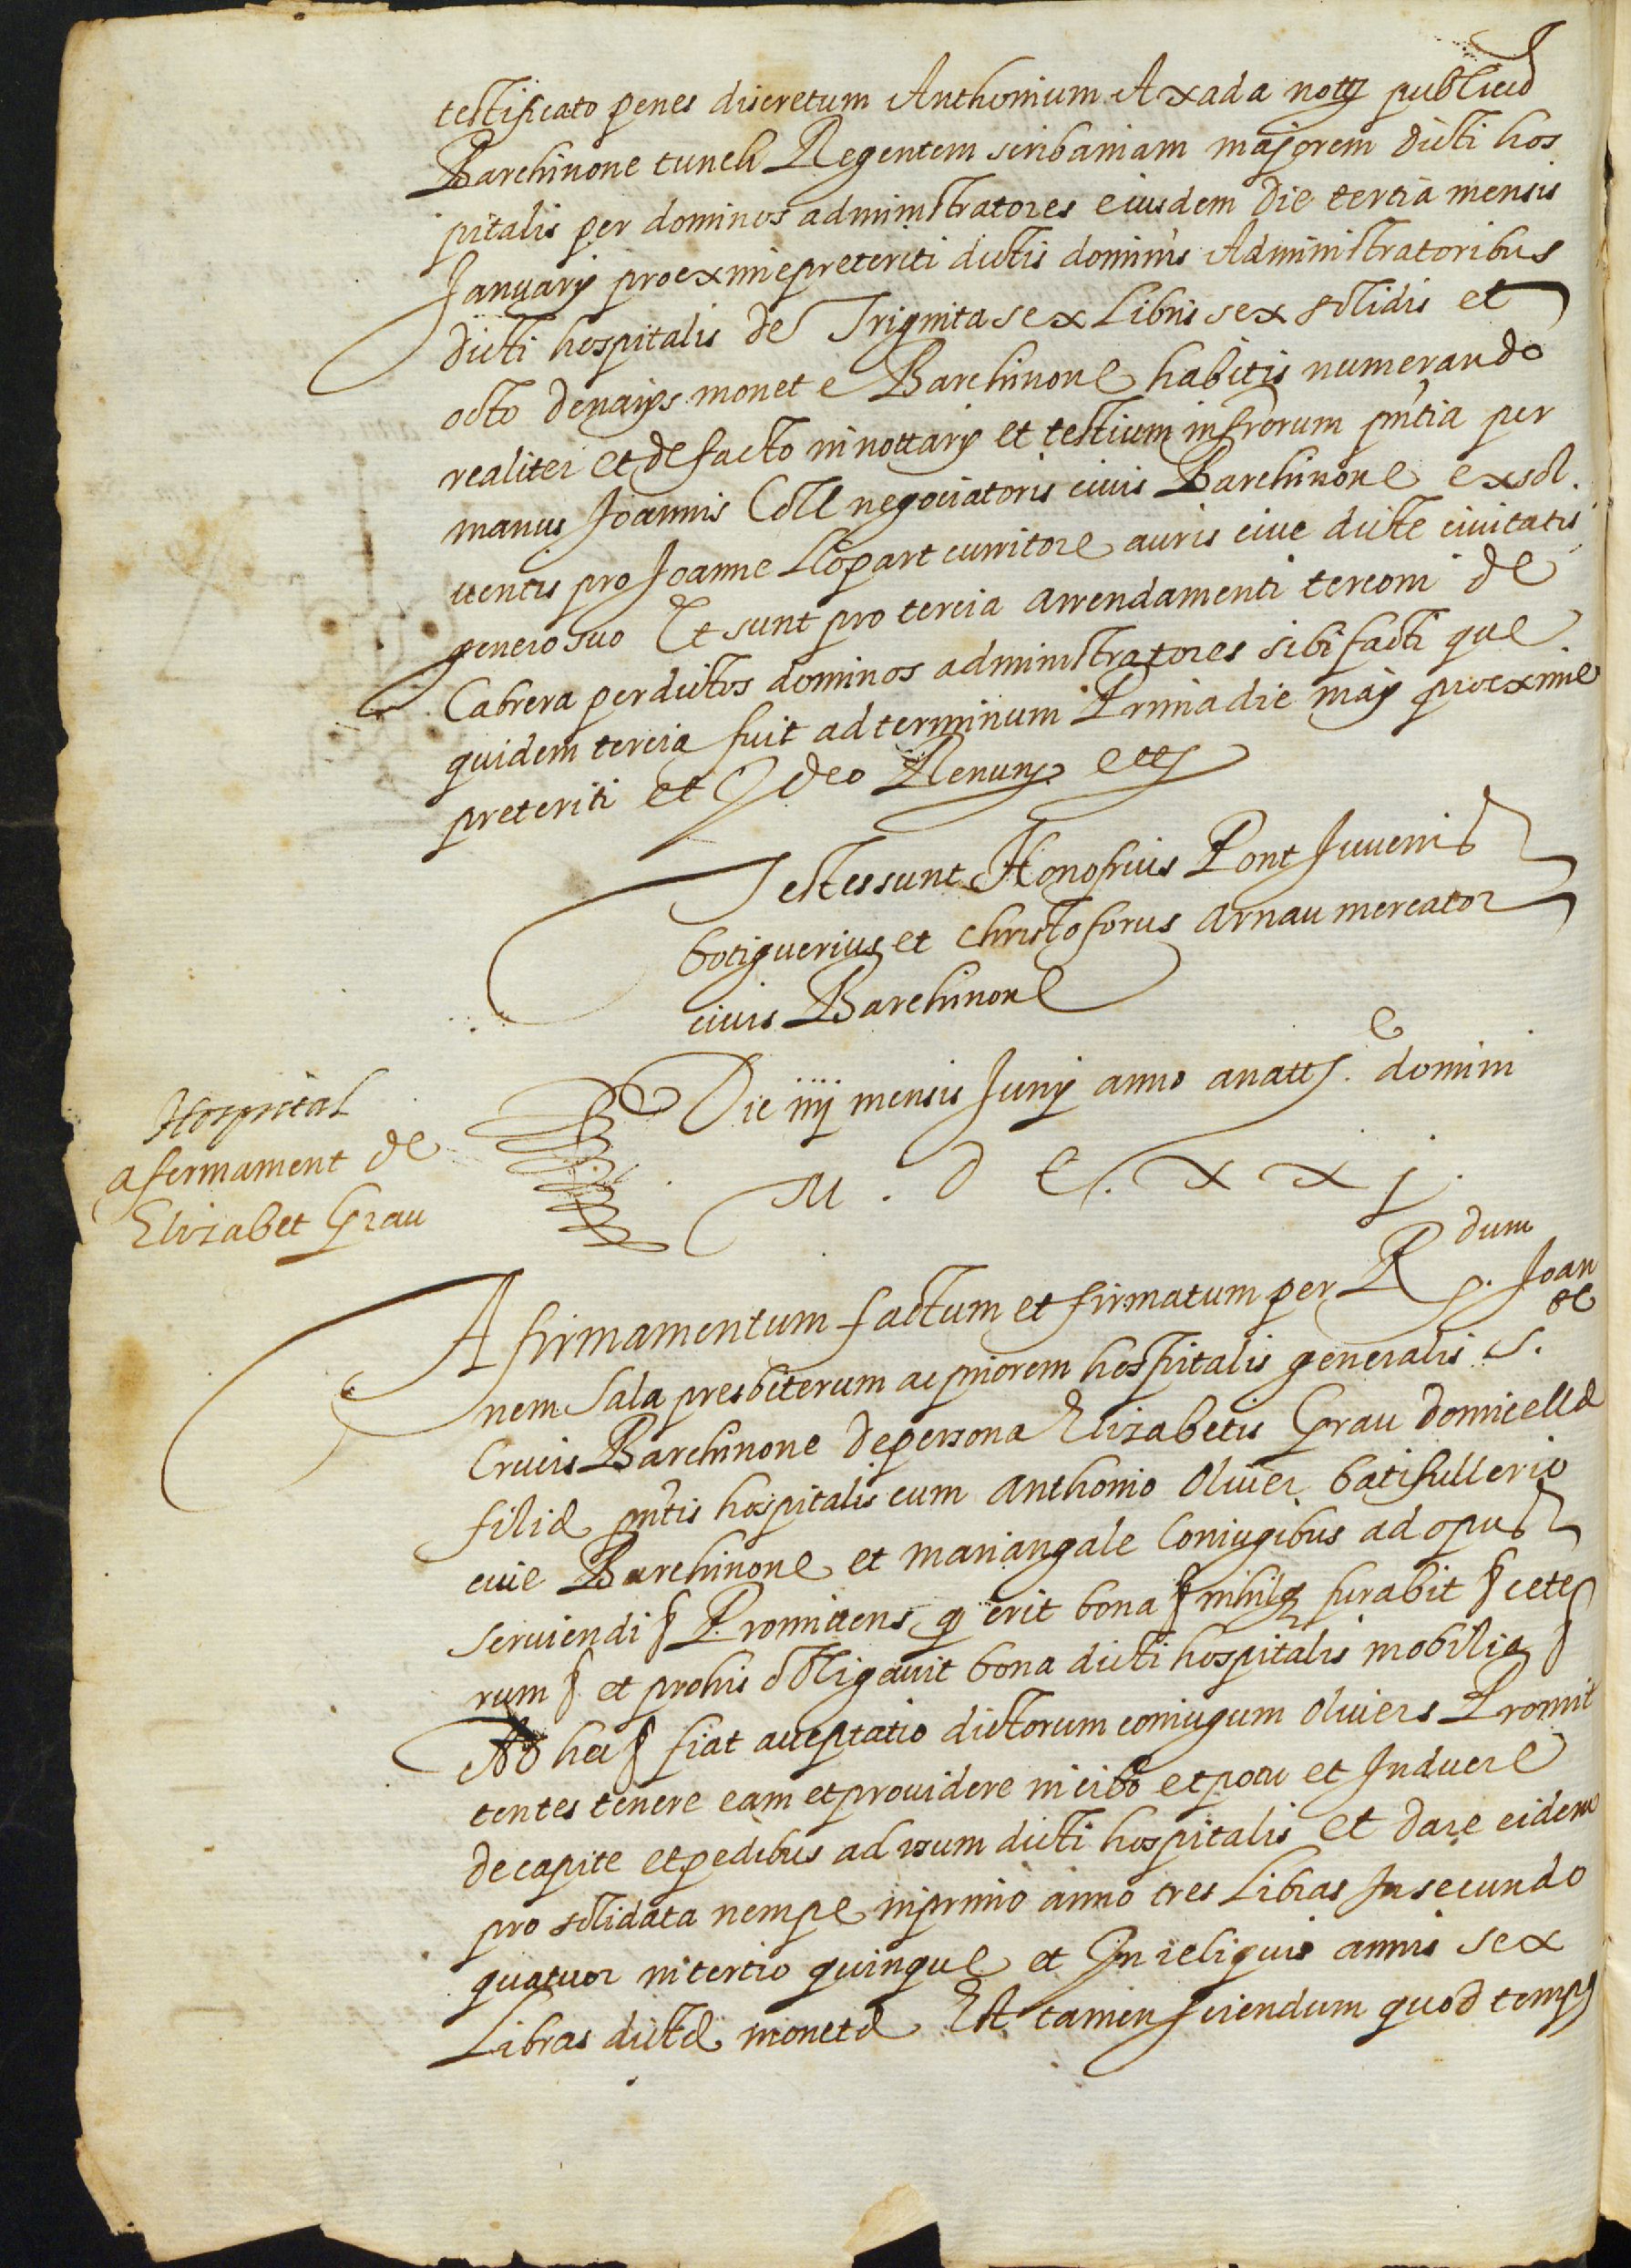 testificato penes discretum Anthonium Axada nottm publicũ
Barchinone tunch Regentem scribaniam majorem dicti hos
pitalis per dominos administratores eiusdem die tertia mensis
Januarij proexmiepreteriti dictis dominis Administratoribus
dicti hospitalis de Triginta sex Libris sex solidis et
octo denarijs monete Barchinone habitis numerando
realiter et de facto in nottarij et testium infrõrum pñtia per
manus Joannis Coll negociatoris civis Barchinone exsol.
uentis pro Joanne Llopart curritore auris cive dicte civitatis
genero suo Et sunt pro tercia arrendamenti terconi de
Cabrera per dictos dominos administratores sibi facti que
quidem tercia fuit ad terminum Prima die maij proexmie
preteriti et Ideo Renuns ettz
Testes sunt Honofrius Pont Juvenis
botiguerius et christoforus Arnau mercator
civis Barchinone
Hospital
afermament de
Elizabet Grau
Die iiij mensis Junij anno anatte domini
M. D C. x x j.
Afirmamentum factum et firmatum per Rdum P. Joan
nem Sala presbiterum ac priorem hospitalis generalis Ste
Crucis Barchinone de persona Elizabetis Grau domicellæ
filiæ pñtis hospitalis cum Anthonio Oliver batifullerio
cive Barchinone et mariangale Coniugibus ad opus
serviendi § Promittens q erit bona § nihilq furabit § cete
rum § et pro his obligavit bona dicti hospitalis mobilia §
Ad hec § fiat acceptatio dictorum coniugum Olivers Promit
tentes tenere eam et providere in cibo et potu et Induere
de capite et pedibus ad usum dicti hospitalis et dare eidem
pro solidata nempe in primo anno tres Libras In secundo
quatuor in tertio quinque et In reliquis annis sex
Libras dictæ monetæ Est tamen sciendum quod temps